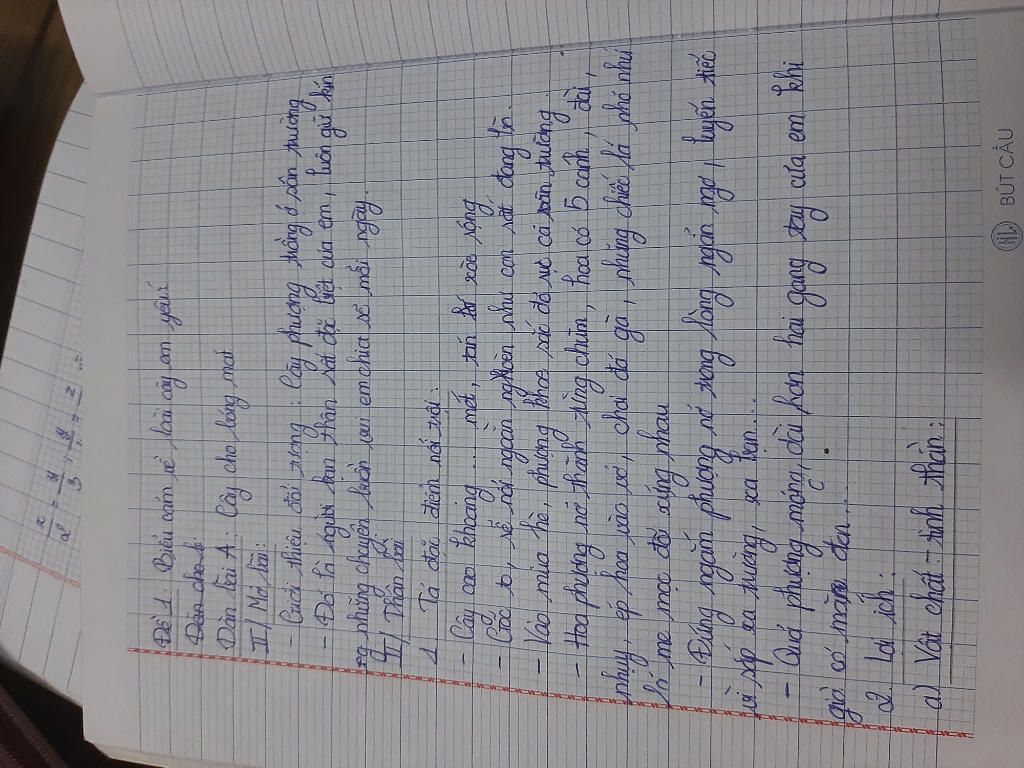 Đề 1: Biểu cảm về loài cây em yêu.
Dàn bài A: Cây cho bóng mát
II/ Mở bài:
- Giới thiệu đối tượng: Cây phượng trồng ở sân trường
- Đó là người bạn thân rất đặc biệt của em, luôn giữ kín
những chuyện buồn vui em chia sẻ mỗi ngày.
II/ Thân bài
1. Tả đặc điểm nổi bật:
- Cây cao khoảng ... mét, tán xòe rộng
- Gốc to, rễ nổi ngoằn nghoèn như con rắn đang bò.
- Vào mùa hè, phượng khoe sắc đỏ rực cả sân trường.
- Hoa phượng nở thành từng chùm, hoa có 5 cánh, đài,
nhụy, ép hoa vào vở, chơi đá gà, những chiếc lá nhỏ như
lá me mọc đối xứng nhau
- Đứng ngắm phượng nở trong lòng ngẩn ngơ, luyến tiếc
vì sắp xa trường, xa bạn...
- Quả phượng mỏng, dài hơn hai gang tay của em khi
già có màu đen...
2. Lợi ích:
a) Vật chất - tinh thần:
BÚT CẦU
x/2 = y/3